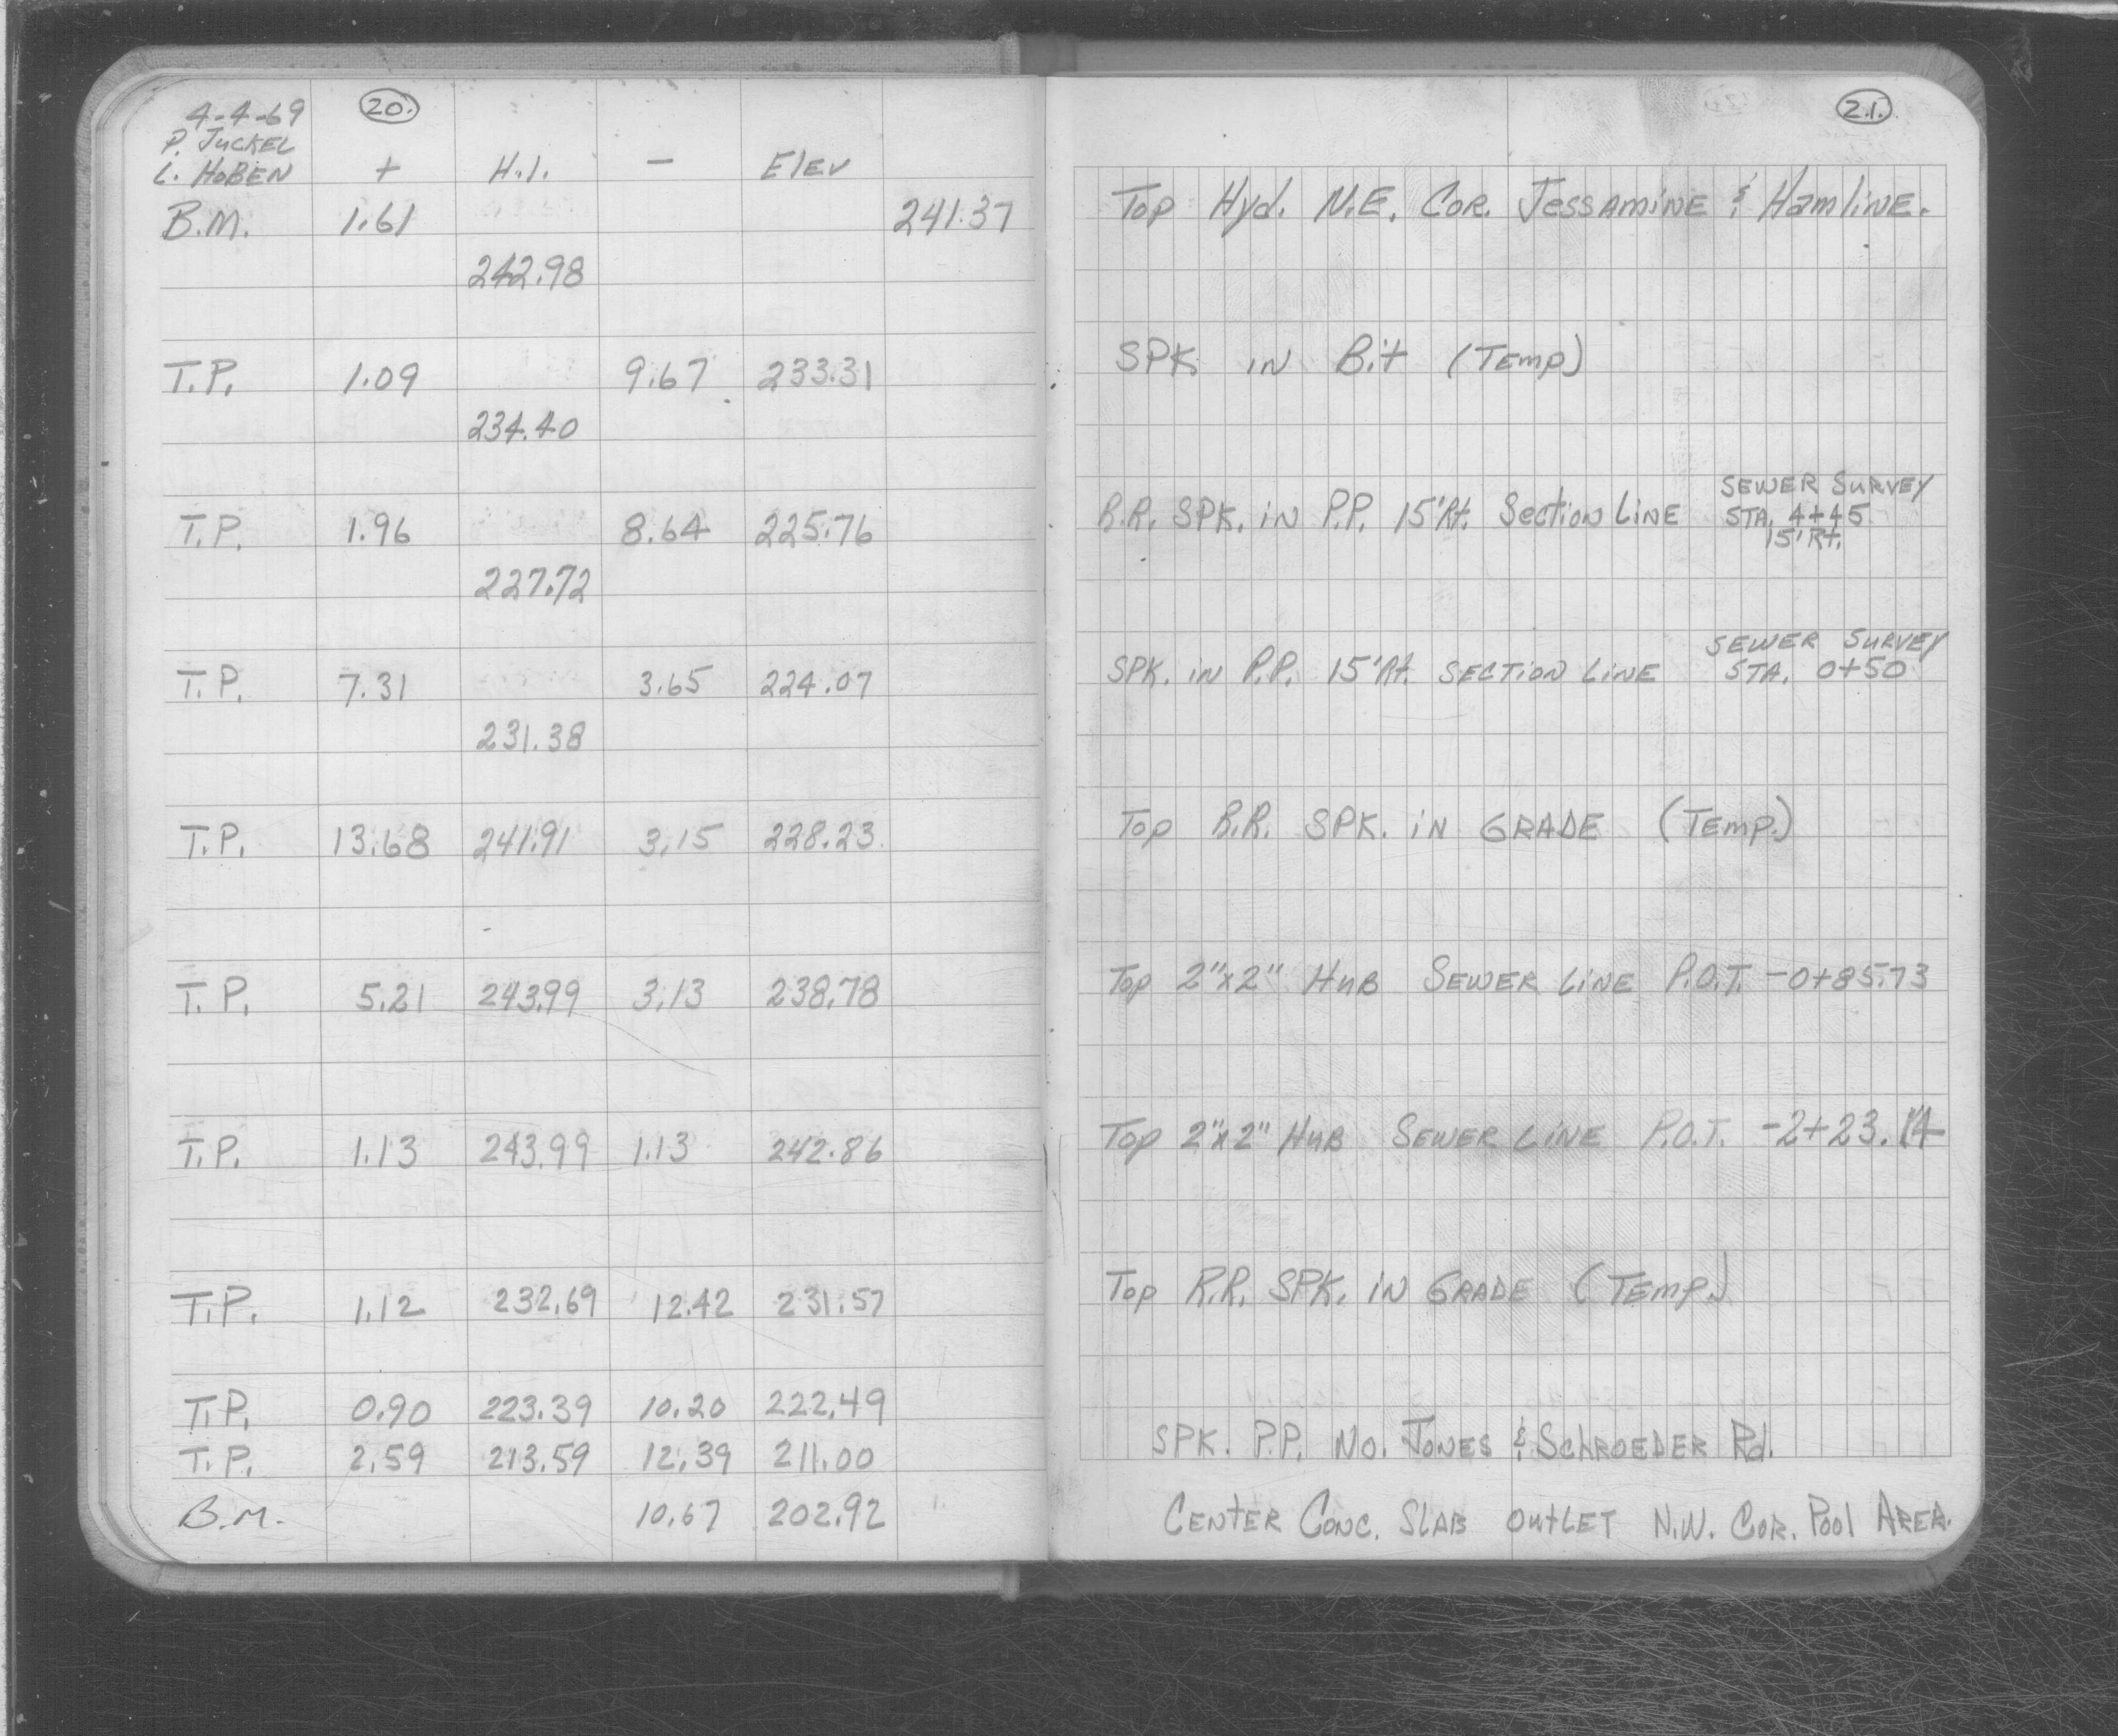 4-4-69
P. JUCKEL
L. HOBEN
20.
+ H.I. - Elev
B.M. 1.61 241.37
242.98
T.P. 1.09 9.67 233.31
234.40
T.P. 1.96 8.64 225.76
227.72
T.P. 7.31 3.65 224.07
231.38
T.P. 13.68 241.91 3.15 228.23
T.P. 5.21 243.99 3.13 238.78
T.P. 1.13 243.99 1.13 242.86
T.P. 1.12 232.69 12.42 231.57
T.P. 0.90 223.39 10.20 222.49
T.P. 2.59 213.59 12.39 211.00
B.M. 10.67 202.92
21.
Top Hyd. N.E. Cor. Jessamine & Hamline.
SPK in Bit (Temp)
R.R. SPK. in P.P. 15' Rt. Section Line
SEWER SURVEY
STA. 4+45
15' Rt.
SPK. in P.P. 15' Rt. SECTION LINE
SEWER SURVEY
STA. 0+50
Top R.R. SPK. in GRADE (Temp.)
Top 2"x2" Hub Sewer Line P.O.T. -0+85.73
Top 2"x2" Hub Sewer Line P.O.T. -2+23.14
Top R.R. SPK. in GRADE (Temp.)
SPK. P.P. No. Jones & Schroeder Rd.
Center Conc. Slab Outlet N.W. Cor. Pool Area.